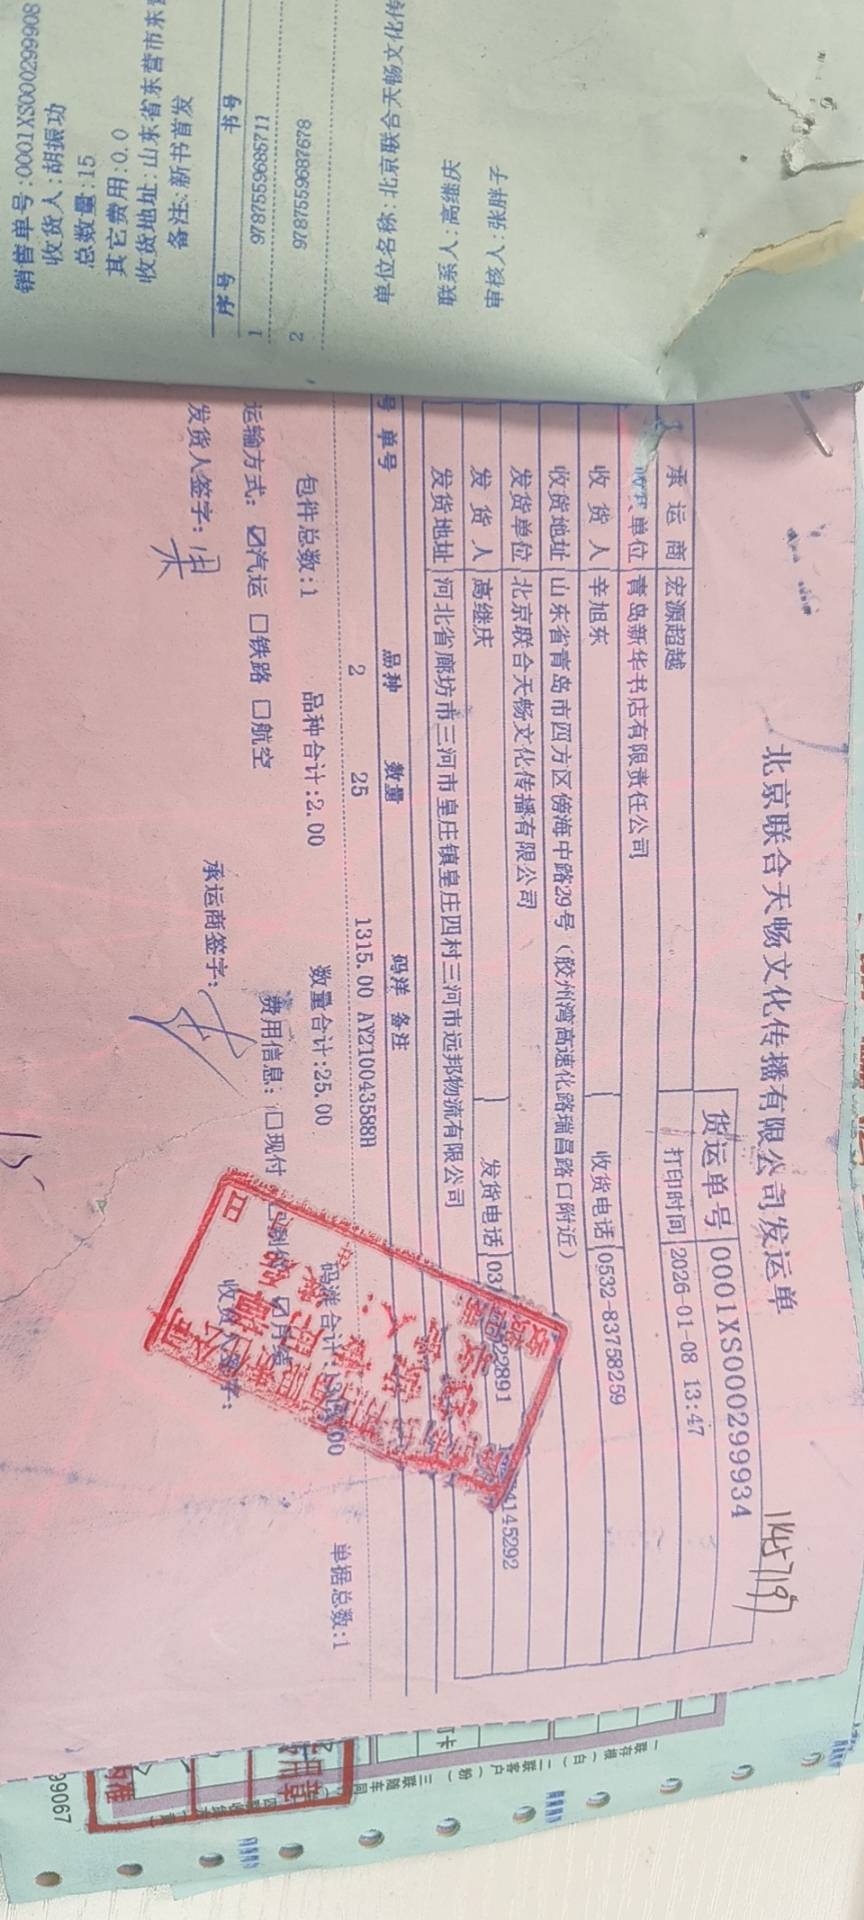 销售单号:0001XS000299908
收货人:胡振功
总数量:15
其它费用:0.0
收货地址:山东省东营市东
备注:新书首发
序号 书号
1 9787559685711
2 9787559687678
单位名称:北京联合天畅文化传
联系人:高继庆
审核人:张胖子
北京联合天畅文化传播有限公司发运单
1145719
货运单号 0001XS000299934
承运商 宏源超越 打印时间 2026-01-08 13:47
单位 青岛新华书店有限责任公司
收货人 辛旭东 收货电话 0532-83758259
收货地址 山东省青岛市四方区傍海中路29号（胶州湾高速化路瑞昌路口附近）
发货单位 北京联合天畅文化传播有限公司
发货人 高继庆 发货电话 03 22891 4145292
发货地址 河北省廊坊市三河市皇庄镇皇庄四村三河市远邦物流有限公司
号 单号 品种 数量 码洋 备注
2 25 1315.00 AY210043588H
包件总数:1 品种合计:2.00 数量合计:25.00 码洋合计: 00 单据总数:1
运输方式: ☑汽运 □铁路 □航空 费用信息: □现付 ☑月结
发货人签字: 承运商签字: 收货 字:
一联存根（白）二联客户（粉）三联随车同
99067